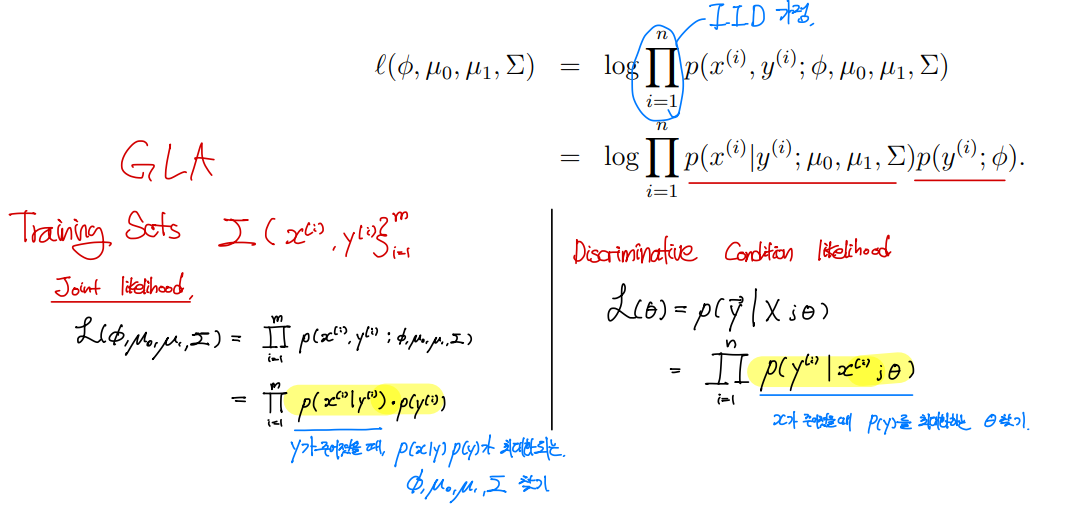 IID 가정.
ℓ(ϕ, μ₀, μ₁, Σ) = log ∏ᵢ₌₁ⁿ p(x⁽ⁱ⁾, y⁽ⁱ⁾; ϕ, μ₀, μ₁, Σ)
= log ∏ᵢ₌₁ⁿ p(x⁽ⁱ⁾|y⁽ⁱ⁾; μ₀, μ₁, Σ)p(y⁽ⁱ⁾; ϕ).
GLA
Training Sets Σ(x⁽ⁱ⁾, y⁽ⁱ⁾}ᵢ₌₁ᵐ
Joint likelihood,
ℒ(ϕ, μ₀, μ₁, Σ) = ∏ᵢ₌₁ᵐ p(x⁽ⁱ⁾, y⁽ⁱ⁾; ϕ, μ₀, μ₁, Σ)
= ∏ᵢ₌₁ᵐ p(x⁽ⁱ⁾|y⁽ⁱ⁾)·p(y⁽ⁱ⁾)
y가 주어졌을 때, p(x|y) p(y)가 최대화되는
ϕ, μ₀, μ₁, Σ 찾기
Discriminative Condition likelihood
ℒ(θ) = p(y⃗ | X ; θ)
= ∏ᵢ₌₁ⁿ p(y⁽ⁱ⁾ | x⁽ⁱ⁾ ; θ)
x가 주어졌을때 p(y)를 최대화하는 θ 찾기.